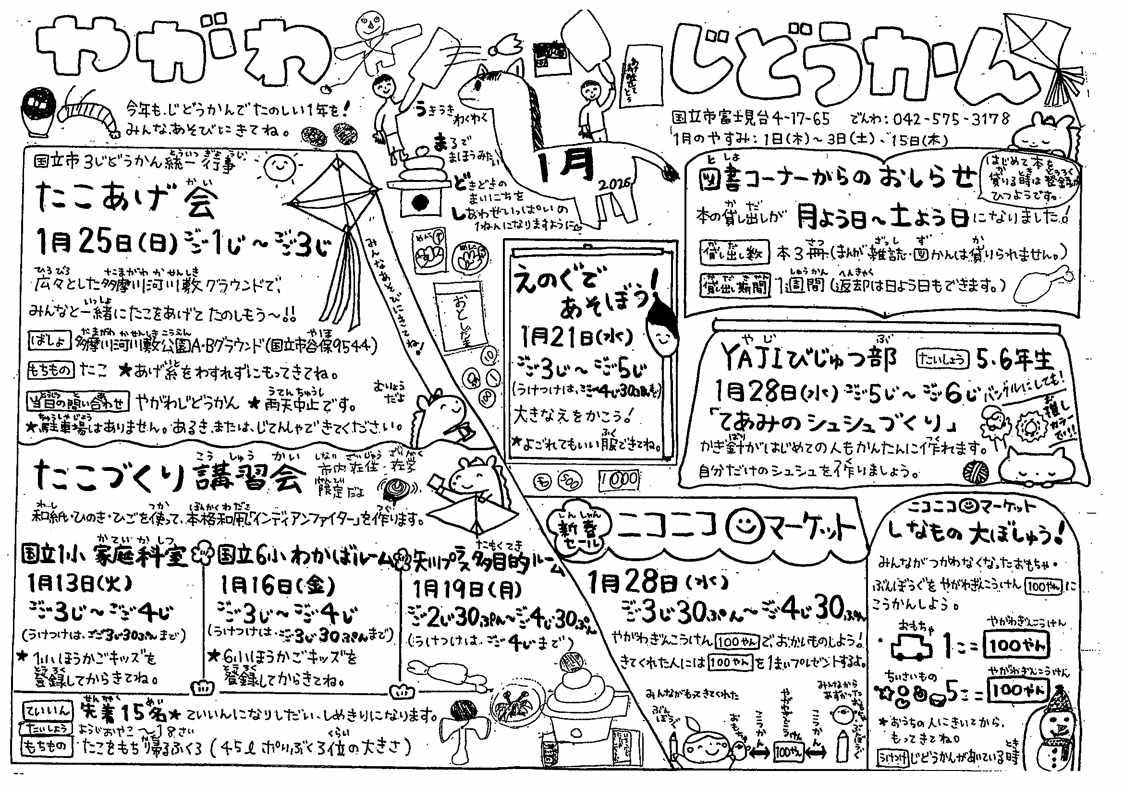 やがわ
じどうかん
今年も、じどうかんでたのしい1年を!
みんなあそびにきてね。
うきうき
わくわく
まるで
まほうみたい
どきどきの
まいにちを
しあわせいっぱいの
1ねんになりますように
1月
2026
国立市富士見台4-17-65 でんわ:042-575-3178
1月のやすみ:1日(木)~3日(土)、15日(木)
国立市3じどうかん統一行事
たこあげ会
1月25日(日)ごご1じ~ごご3じ
広々とした多摩川河川敷グラウンドで、
みんなと一緒にたこをあげてたのしもう~!!
ばしょ 多摩川河川敷公園A・Bグラウンド(国立市谷保9544)
もちもの たこ ★あげ紫をわすれずにもってきてね。
当日の問い合わせ やがわじどうかん ★雨天中止です。
★駐車場はありません。あるき、または、じてんしゃできてください。
むりょう
だよ
たこづくり講習会
市内在住・在学
限定だよ
和紙・ひのき・ひごを使って、本格和凧「インディアンファイター」を作ります。
国立1小 家庭科室
1月13日(火)
ごご3じ~ごご4じ
(うけつけは、ごご3じ30ぷんまで)
★1小ほうかごキッズを
登録してからきてね。
国立6小わかばルーム
1月16日(金)
ごご3じ~ごご4じ
(うけつけは、ごご3じ30ぷんまで)
★6小ほうかごキッズを
登録してからきてね。
矢川プラス多目的ルーム
1月19日(月)
ごご2じ30ぷん~ごご4じ30ぷん
(うけつけは、ごご4じまで)
ていいん 先着15名★ていいんになりしだい、しめきりになります。
たいしょう ようじおやこ~18さい
もちもの たこをもち帰るふくろ(45ℓポリぶくろ位の大きさ)
おとしだま
えのぐで
あそぼう!
1月21日(水)
ごご3じ~ごご5じ
(うけつけは、ごご4じ30ぷんまで)
大きなえをかこう!
★よごれてもいい服できてね。
1000
図書コーナーからのおしらせ
はじめて本を
借りる時は登録が
ひつようです。
本の貸し出しが 月よう日~土よう日になりました。
貸し出し数 本3冊(まんが、雑誌・図かんは借りられません。)
貸し出し期間 1週間(返却は日よう日もできます。)
YAJIびじゅつ部 たいしょう 5.6年生
1月28日(水)ごご5じ~ごご6じ
バックルにしても!
「てあみのシュシュづくり」
推し
カラーで!!
かぎ針がはじめての人もかんたんに作れます。
自分だけのシュシュを作りましょう。
新春
セール
ニコニコマーケット
1月28日(水)
ごご3じ30ぷん~ごご4じ30ぷん
やがわぎんこうけん100やんで、おかいものしよう!
きてくれた人には100やんを1まいプレゼントするよ。
みんながもってきてくれた
ぶんぼうぐ
おもちゃ
こうかん
やがわぎんこうけん
100やん
こうかん
ニコニコマーケット
しなもの大ぼしゅう!
みんながつかわなくなったおもちゃ・
ぶんぼうぐをやがわぎんこうけん100やんに
こうかんしよう。
おもちゃ
1こ=
やがわぎんこうけん
100やん
ちいさいもの
5こ=
やがわぎんこうけん
100やん
★おうちの人にきいてから、
もってきてね。
うけつけ じどうかんが開いている時